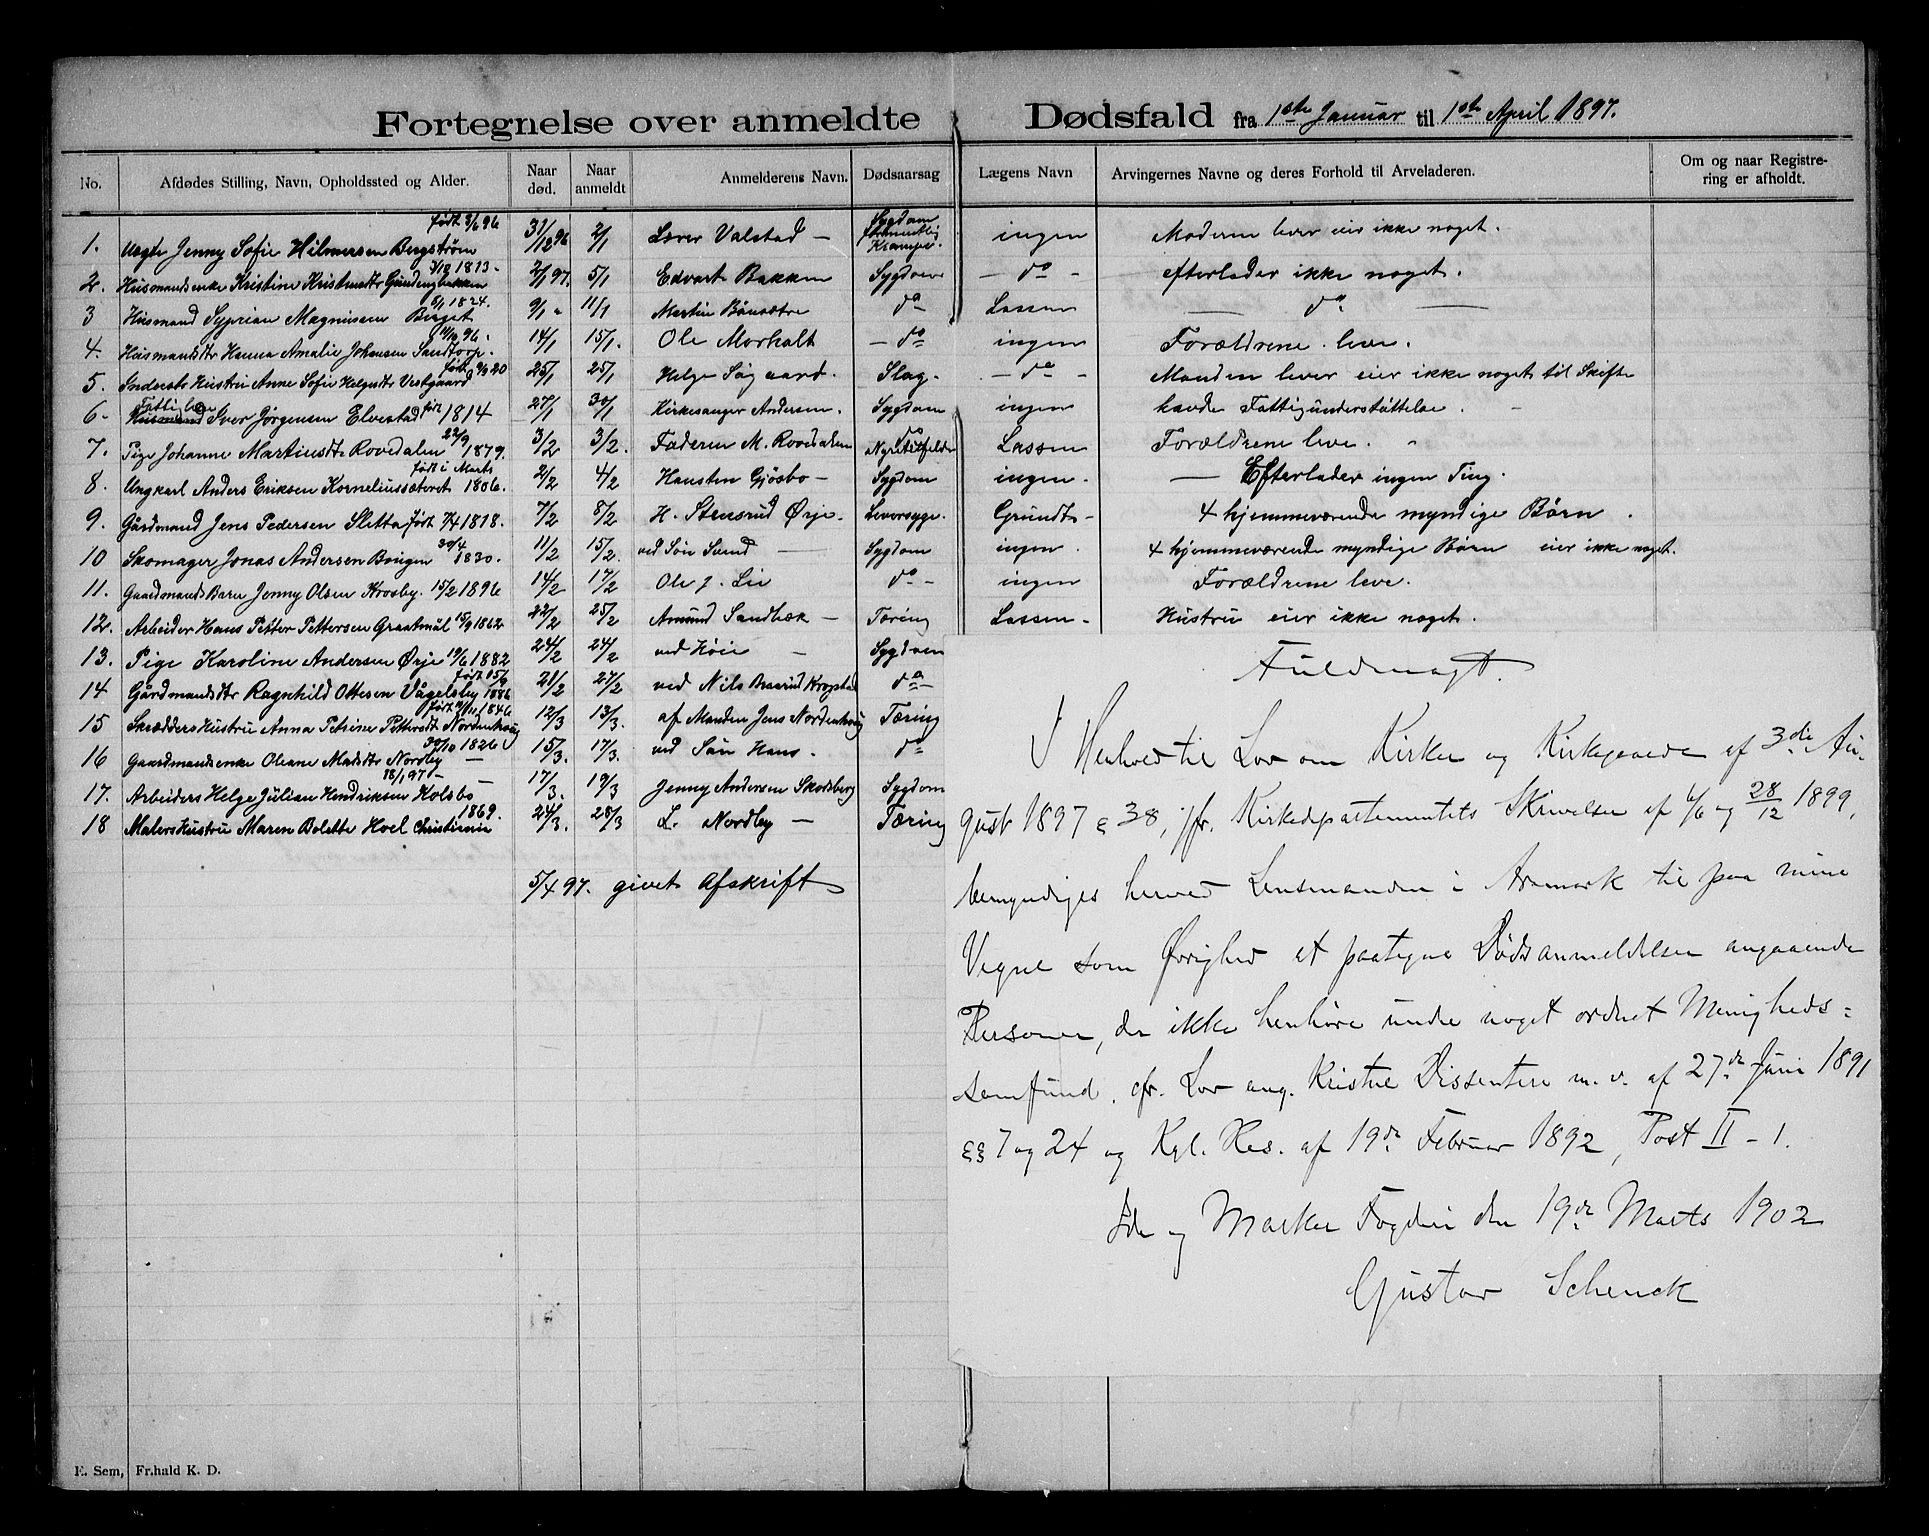 Fortegnelse over anmeldte Dødsfald fra 1ste Januar til 1ste April 1897.
No. Afdødes Stilling, Navn, Opholdssted og Alder. Naar død. Naar anmeldt Anmelderens Navn. Dødsaarsag Lægens Navn Arvingernes Navne og deres Forhold til Arveladeren. Om og naar Registrering er afholdt.
1. Uægte Jenny Sofie Hilmersen Bergström født 3/6 96 31/12 96 2/1 Lærer Valstad — Sygdom Krampe. ingen Moderen lever eier ikke noget.
2. Husmandsenke Kristine Kristensdtr 1813 2/1 97. 5/1 Edvart Bakken Sygdom — do - efterlader ikke noget.
3 Husmand Syprian Magnussen Berget 8/1 1824. 9/1 " 11/1 Martin Bönsætre do Lassen — do —
4. Husmandsdtr Hanna Amalie Johansen Sandtorp. 96. 14/1 15/1. Ole Morholt — do ingen Forældrene leve.
5. Inderste Hustru Anne Sofie Helgesdtr Vestgaard født 20 25/1 25/1 Helge Søgaard. Slag. — do - Manden lever eier ikke noget til Skifte
6. Fattiglem Husmand Iver Jörgensen Elvestad født 1814 27/1 30/1 Kirkesanger Andersen. Sygdom ingen havde Fattigunderstøttelse.
7. Pige Johanne Martinsdtr Rovedalen 22/9 1879. 3/2 3/2. Faderen M. Rovedalen do Lassen Forældrene leve.
8. Ungkarl Anders Eriksen Korneliussæteret født i Marts 1806. 2/2 4/2 Hansten Gjösbo — Sygdom ingen. — Efterlader ingen Ting.
9. Gårdmand Jens Pedersen Sletta født 7/4 1818. 7/2 8/2 H. Stensrud Ørje. Leversyge. Grundt - 4 hjemmeværende myndige Börn.
10 Skomager Jonas Andersen Bøngen 30/4 1830. 11/2 15/2. ved Sön Svend — Sygdom ingen. 4 hjemmeværende myndige Börn eier ikke noget.
11. Gaardmands Barn Jenny Olsen Krosby. 15/2 1896 14/2 17/2 Ole J. Lie do - ingen Forældrene leve.
12. Arbeider Hans Petter Pettersen Graatmål 15/9 1862 22/2 25/2 Amund Sandbæk — Tæring Lassen - Hustru eier ikke noget.
13. Pige Karoline Andersen Ørje 19/6 1882 24/2 24/2 ved Höie — Sygdom
14 Gårdmandsdtr Ragnhild Ottesen Vågelsby født 15/9 1886 21/2 27/2 ved Nils Braarud Krogstad do -
15 Skrædders Hustru Anna Petrine Pettersdtr Nordenhaug født 1846 12/3 13/3. af Manden Jens Nordenhaug Tæring
16 Gaardmandsenke Oleane Madsdtr Nordby — 30/10 1826 15/3. 17/3. ved Sön Hans. do
17. Arbeiders Helge Julian Hendriksen Kolsbo — 18/1 97 — 17/3. 19/3 Jenny Andersen Skodsberg Sygdom
18 Malers Hustru Maren Bolette Hoel Christiania 1869. 24/3. 28/3 L. Nordby — Tæring
5/4 97. givet Afskrift
Fuldmagt.
I Henhold til Lov om Kirker og Kirkegaarde af 3die Au-
gust 1897 § 38, jfr. Kirkedepartementets Skrivelser af 6/6 og 28/12 1899,
bemyndiges herved Lensmanden i Aremark til paa mine
Vegne som Øvrighed at paategne Dødsanmeldelser angaaende
Personer, der ikke henhøre under noget ordnet Menigheds=
samfund. cfr. Lov ang. Kristne Dissentere m. v. af 27de Juni 1891
§§ 7 og 24 og Kgl. Res. af 19de Februar 1892, Post II - 1.
Ide og Marker Fogderi den 19de Marts 1902
Gustav Schenck
E. Sem, Fr.hald K. D.